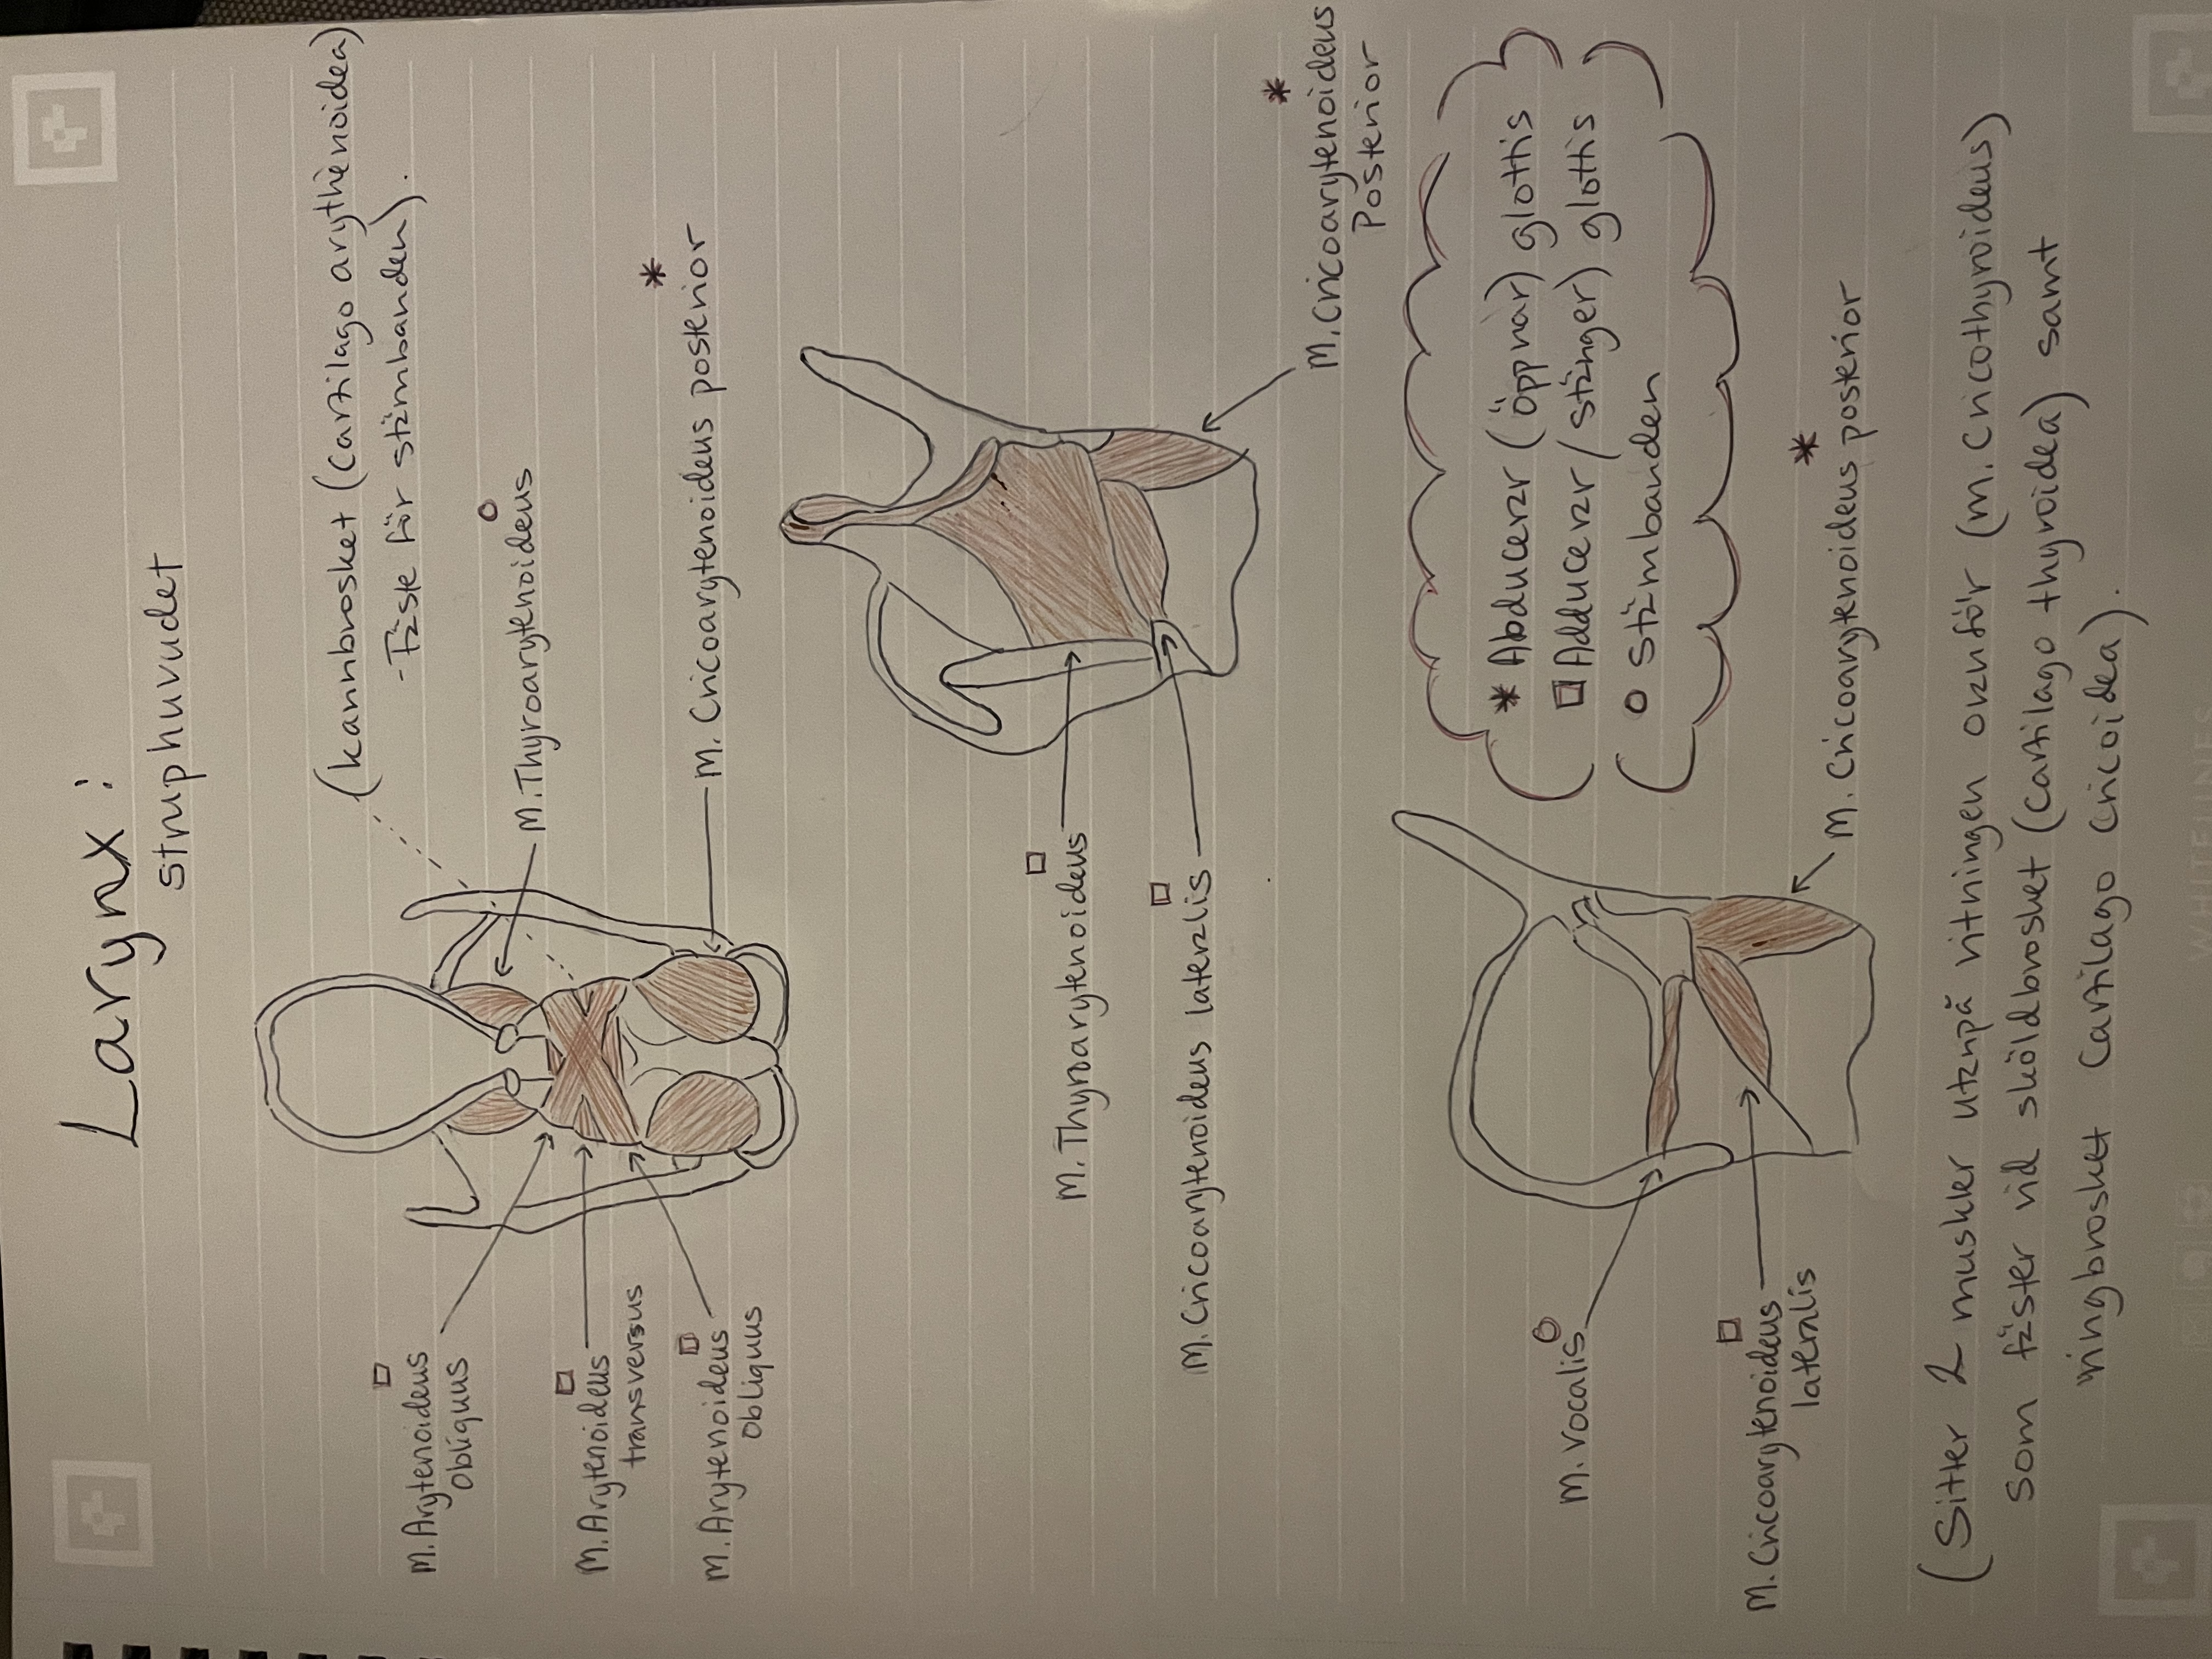 Larynx:
struphuvudet
(kannbrosket (cartilago arythenoidea)
- Fäste för stämbanden).
M. Thyroarytenoideus ○
M. Cricoarytenoideus posterior *
□
M. Arytenoideus
obliquus
□
M. Arytenoideus
transversus
□
M. Arytenoideus
obliquus
□
M. Thyroarytenoideus
□
M. Cricoarytenoideus lateralis
*
M. Cricoarytenoideus
Posterior
* Abducerar (öppnar) glottis
□ Adducerar/stänger) glottis
○ stämbanden
M. Vocalis ○
□
M. Cricoarytenoideus
lateralis
*
M. Cricoarytenoideus posterior
(Sitter 2 muskler utanpå ritningen ovanför (m. cricothyroideus)
som fäster vid sköldbrosket (cartilago thyroidea) samt
ringbrosket cartilago cricoidea).
WHITELINES